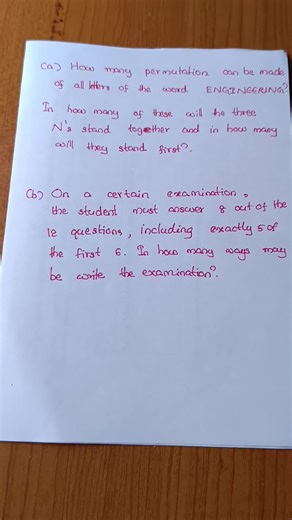 (a) How many permutation can be made
of all letters of the word ENGINEERING?
In how many of these will the three
N's stand together and in how many
will they stand first?
(b) On a certain examination,
the student must answer 8 out of the
12 questions, including exactly 5 of
the first 6. In how many ways may
be write the examination?